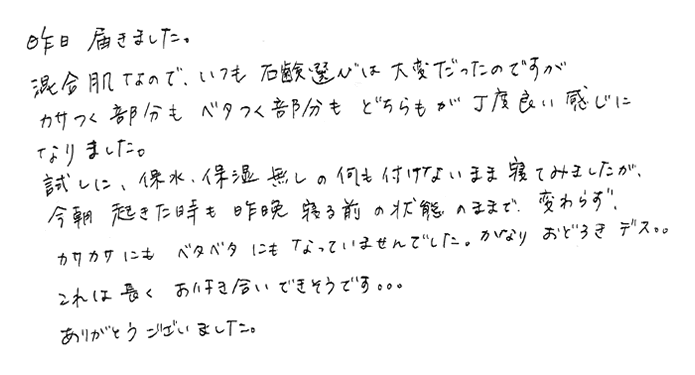 昨日 届きました。
混合肌なので、いつも 石鹸選びは 大変だったのですが
カサつく部分も ベタつく部分も どちらもが 丁度良い 感じに
なりました。
試しに、保水、保湿 無しの 何も 付けないまま 寝てみましたが、
今朝 起きた時も 昨晩 寝る前の 状態のままで、変わらず、
カサカサにも ベタベタにも なっていませんでした。かなり おどろきデス。。
これは 長く お付き合いできそうです。。。
ありがとうございました。